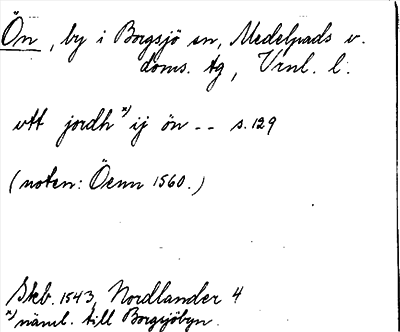 Ön, by i Borgsjö sn, Medelpads v.
doms. tg, Vrnl. l.
ett jordh x) ij ön -- s. 129
(noten: Öenn 1560.)
Skb. 1543, Nordlander 4
x) näml. till Borgsjöbyn.